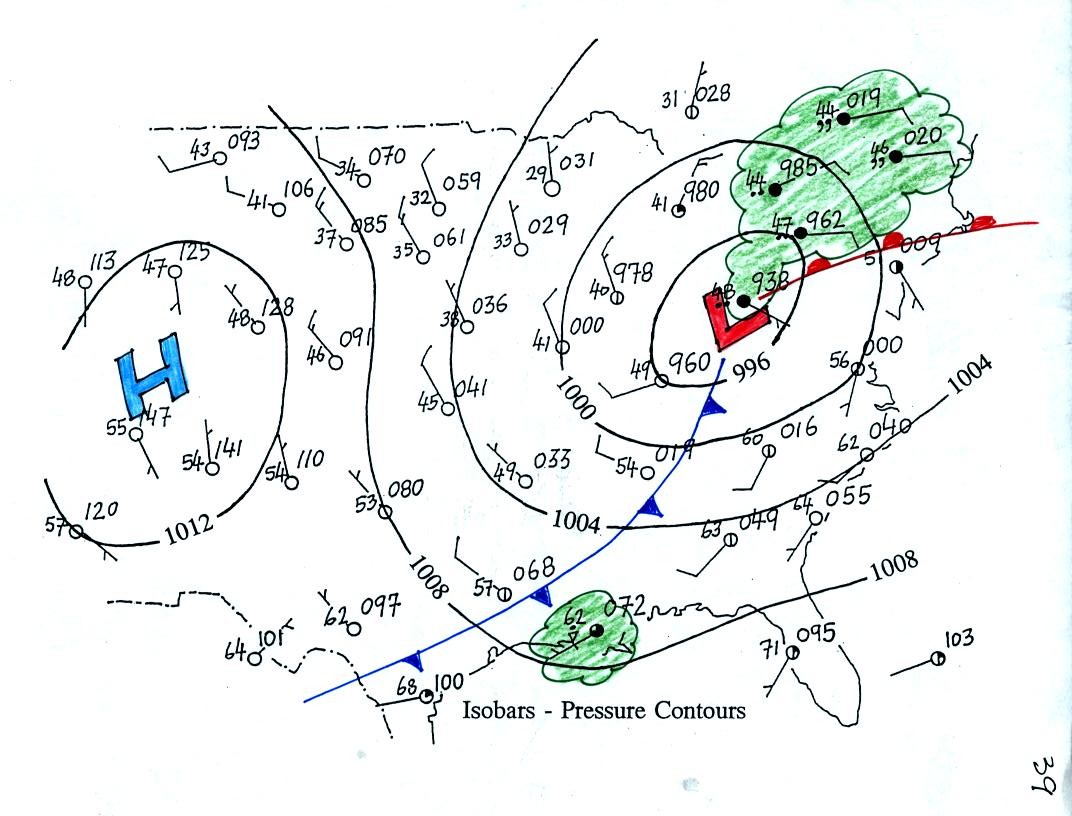 31 028
44 019
43 093
46 020
34 070
29 031
44 985
41 106
32 059
41 980
47 962
37 085
35 061
33 029
009
48 113
47 125
40 978
938
48 128
38 036
46 091
41 000
49 960
996
56 000
H
L
1000
1004
45 041
55 147
54 141
54 110
49 033
54 019
60 016
62 040
57 120
1012
53 080
1004
63 049
64 055
1008
57 068
1008
62 097
62 072
64 101
71 095
103
68 100
Isobars - Pressure Contours
39